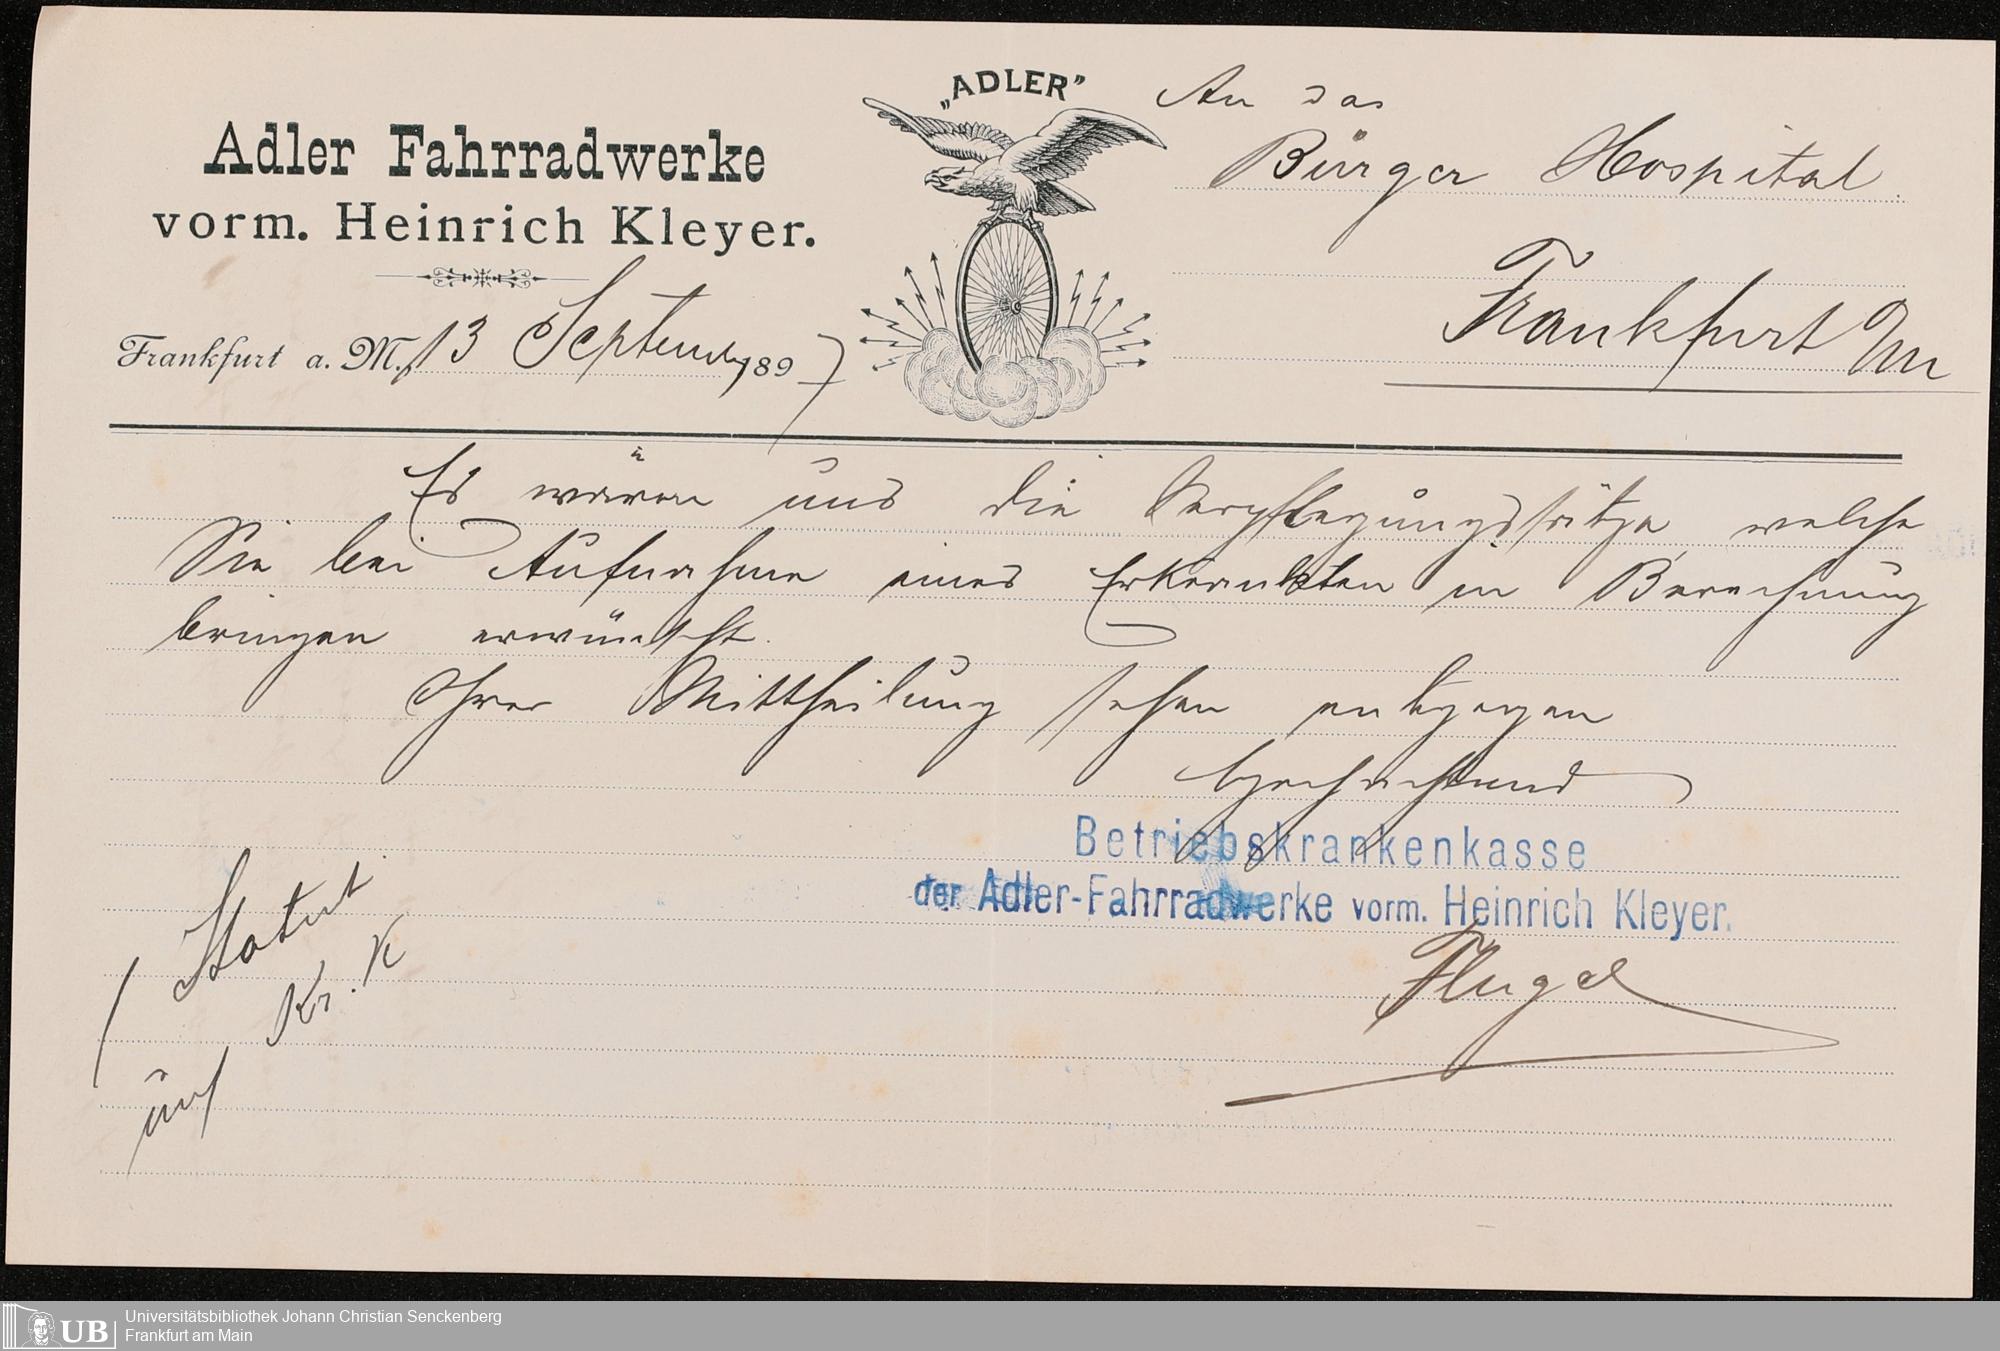 „ADLER”
Adler Fahrradwerke
vorm. Heinrich Kleyer.
Frankfurt a. M., 13 September 1897
An das
Bürger Hospital
Frankfurt a/M
Es wären uns die Verpflegungssätze, welche
Sie bei Aufnahme eines Erkrankten in Berechnung
bringen erwünscht.
Ihrer Mittheilung sehen entgegen
hochachtend
Betriebskrankenkasse
der Adler-Fahrradwerke vorm. Heinrich Kleyer.
Flugel
Statut
Kr. K
UB
Universitätsbibliothek Johann Christian Senckenberg
Frankfurt am Main